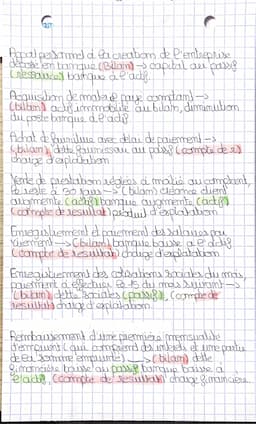 Appal personnel à la création de l'entreprise
déposé en banque (Bilan) → capital au passif
(ressources) banque à l'actif.
Acquisition de matériel payé comptant →
(bilan) actif immobilisé au bilan, diminution
du poste banque à l'actif
Achat de fournitures avec délai de paiement →
(bilan) dette fournisseur au passif (compte de r)
charge d'exploitation
Vente de prestation réglées à moitié au comptant,
le reste à 30 jours → (bilan) créance client
augmente (actif) banque augmente (actif)
(compte de resultat) produit d'exploitation
Enregistrement et paiement des salaires par
virement → (bilan) banque baisse à l'actif
(compte de resultat) charge d'exploitation
Enregistrement des cotisations sociales du mois,
paiement à effectuer le 15 du mois suivant →
(bilan) dette sociales (passif), (compte de
resultat) charge d'exploitation.
Remboursement d'une première mensualité
d'emprunt (qui comprend des intérêts et une partie
de la somme empruntée) → (bilan) dette
financière baisse au passif banque baisse à
l'actif, (compte de resultat) charge financière.